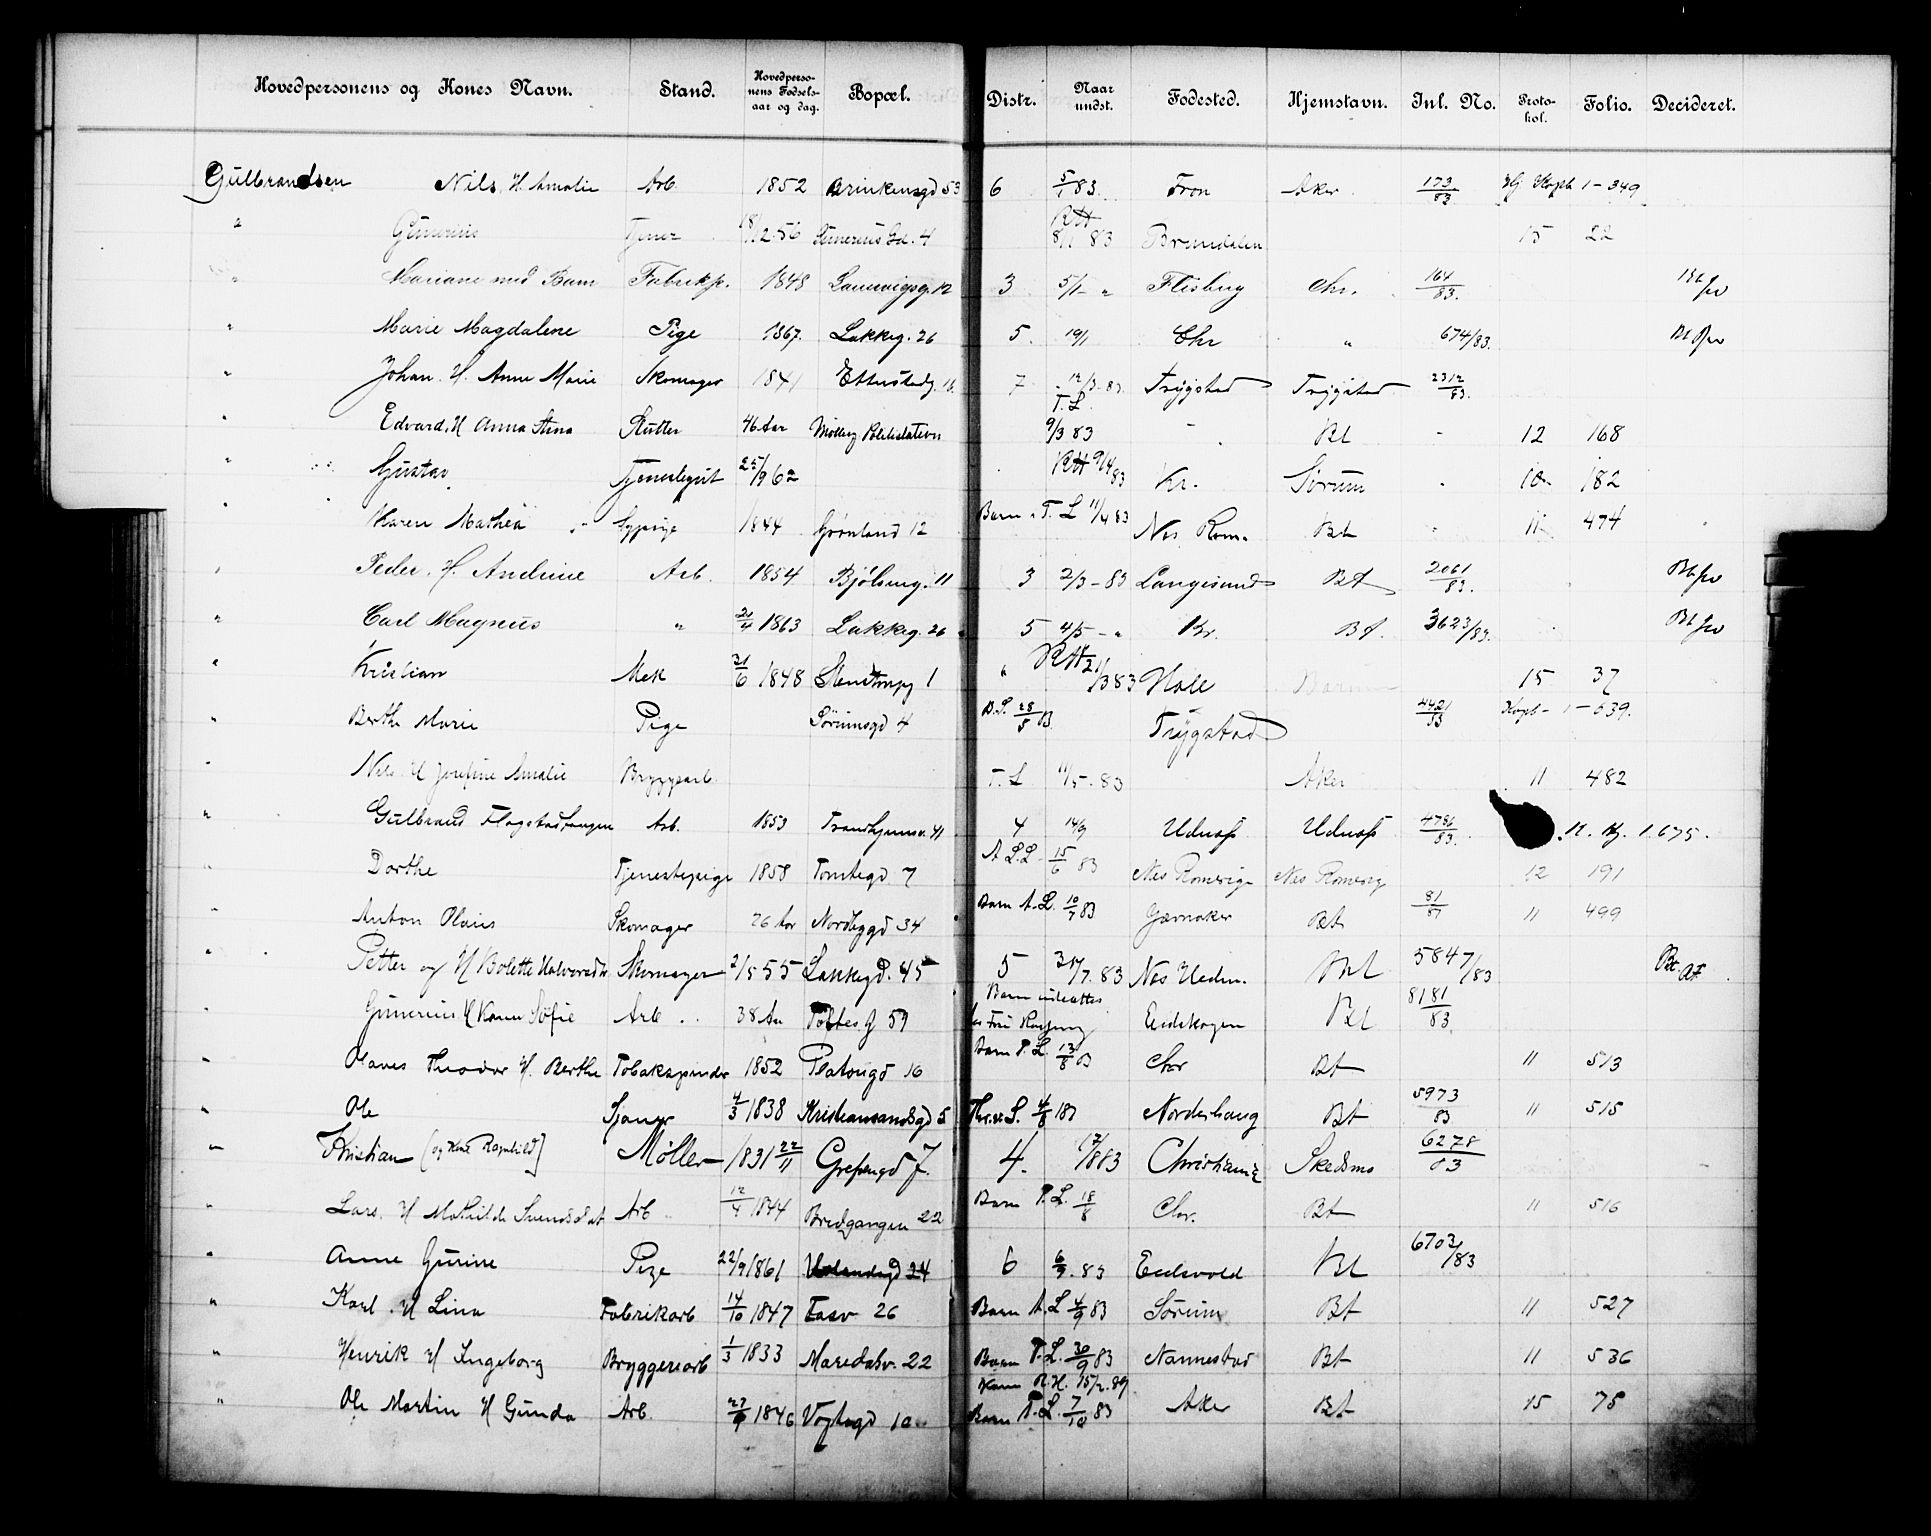 Hovedpersonens og Kones Navn. Stand. Hovedpersonens Fødselsaar og dag. Bopæl. Distr. Naar undst. Fødested. Hjemstavn. Inl. No. Protokol. Folio. Decideret.
Gulbrandsen Nils, H. Amalie Arb. 1852 Brinkensgd 53 6 5/1 83. Fron Aker 173/83 1-349
" Gunerius Tjener 18/12.56 4 8/1 83 15 22
" Mariane med Barn Fabrikp. 1848 12 3 5/1 - " Flisbyg Chr. 164/83.
" Marie Magdalene Pige 1867. Lakkeg. 26 5. 19/1 Chr " 674/83.
" Johan. H. Anne Marie Skomager 1841 Etterstadg. 7 12/3-83. T.L. Trygstad Trygstad 2312/83.
" Edvard, H Anna Stina Slutter 46 Aar Møllerg Politistation 9/3 83 - Bt - 12 168
" Gustav Tjenestegut 25/9 62 RH 9/4 83 Kr. Sørum 10 182
" Karen Mathea Sypige 1844 Grønland 12 Barn T. L 11/4 83 Nes Rom. Bt 11 474
" Peder. H. Andrine Arb. 1854 Bjølseng. 11 3 2/3-83 Langesund Bt 2061/83.
" Carl Magnus " 21/4 1863 Lakkeg. 26 5 4/5 - " Kr. Bt. 3623/83.
" Kristian Mek 21/6 1848 Stenstrupg 1 " RH 21/3 83 Hole 15 37
" Berthe Marie Pige Sørumsgd 4 28/5 83 Trygstad 4421/83 1-639.
" Nils H Josefine Amalie Bryggearb. T. L 11/5.83 Aker 11 482
" Gulbrand Flagstadhaugen Arb. 1853 Trondhjemsv. 41 4 14/9 Udnæs Udnæs 4786/83. 1.675.
" Dorthe Tjenestepige 1858 Tomtegd 7 A L.L. 15/6 83 Nes Romerige Nes Romerig 12 191
" Anton Olaus Skomager 26 Aar Nordbygd 34 Barn A.L. 10/7 83 Gærmaker Bt 81/87 11 499
" Petter og H Bolette Halvorsdtr. Skomager 2/5 55 Lakkegd. 45 5 31/7.83 Nes Hedm. Bt 5847/83
" Gunerius H Karen Sofie Arb. 38 Aar Toftes.g 59 Barn indsættes Eidskogen Bt 8181/83.
" Olaves Theodor H. Berthe Tobakspinder 1852 Platougd 16 Barn T. L. 13/8 83 Chr Bt 11 513
" Ole Sjauer 4/3 1838 Kristiansandsgd 5 4/8 183 Norderhaug Bt 5973/83 11 515
" Kristian [og Kone Ragnhild] Møller 1831 22/11 Grefsengd 7. 4. 17/8 83 Christiania Skedsmo 6278/83
" Lars. H Mathilde Svendsdat Arb 12/4 1844 Bredgangen 22 Barn T. L. 18/8 Chr. Bt 11 516
" Anne Gurine Pige 22/9 1861 24 6 6/9.83 Eidsvold Bt 6703/83
" Karl. H Lina Fabrikarb 14/10 1847 Fasv 26 Barn A. L 4/9 83 Sørum Bt 11 527
" Henrik H Ingeborg Bryggeriarb 1/3 1833 Maridalsv. 22 Barn T.L. 30/9 83 Nannestad Bt 11 536
Kone R.H. 15/2.89
" Ole Martin H Gunda Arb. 27/9 1846 Vogtsgd 10 Barn T.L. 7/10 83 Aker Bt 15 75